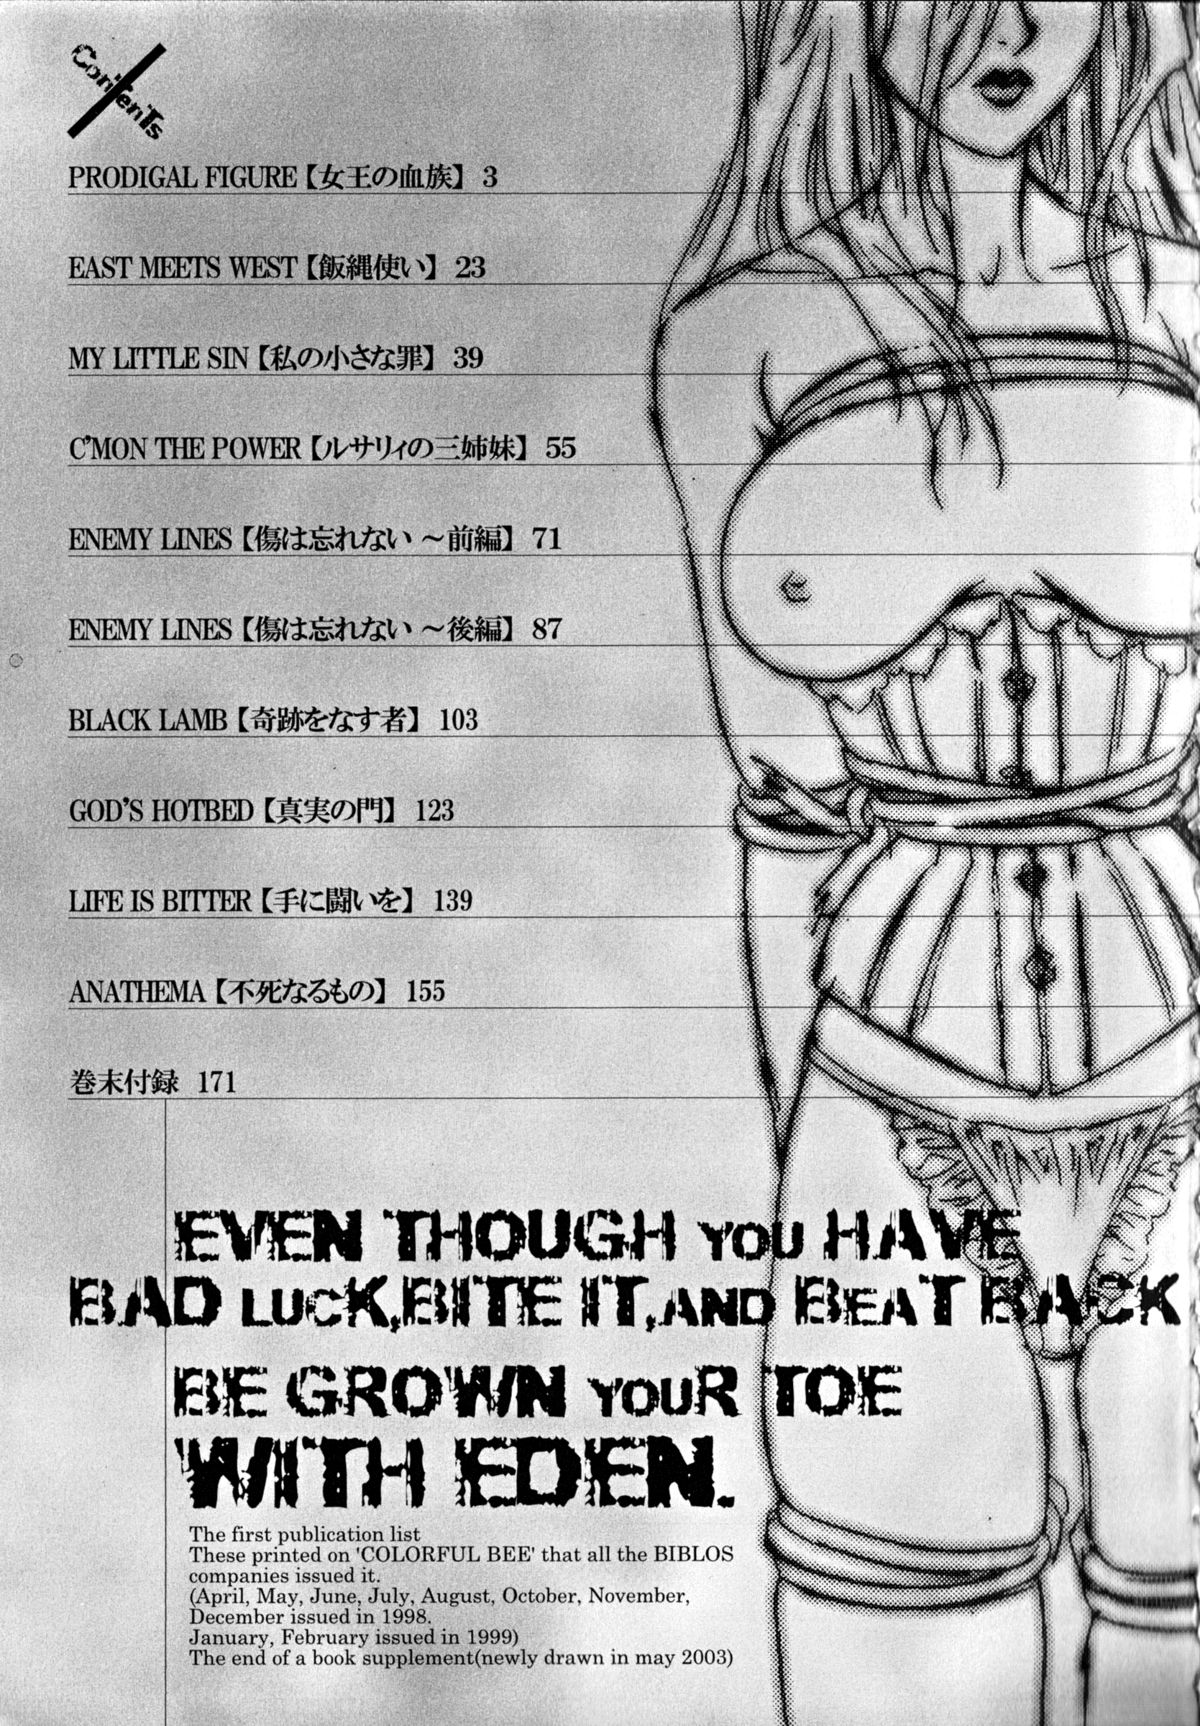 Contents
PRODIGAL FIGURE【女王の血族】 3
EAST MEETS WEST【飯縄使い】 23
MY LITTLE SIN【私の小さな罪】 39
C'MON THE POWER【ルサリィの三姉妹】 55
ENEMY LINES【傷は忘れない ～前編】 71
ENEMY LINES【傷は忘れない ～後編】 87
BLACK LAMB【奇跡をなす者】 103
GOD'S HOTBED【真実の門】 123
LIFE IS BITTER【手に闘いを】 139
ANATHEMA【不死なるもの】 155
巻末付録 171
EVEN THOUGH YOU HAVE
BAD LUCK,BITE IT,AND BEAT BACK
BE GROWN YOUR TOE
WITH EDEN.
The first publication list
These printed on 'COLORFUL BEE' that all the BIBLOS
companies issued it.
(April, May, June, July, August, October, November,
December issued in 1998.
January, February issued in 1999)
The end of a book supplement(newly drawn in may 2003)